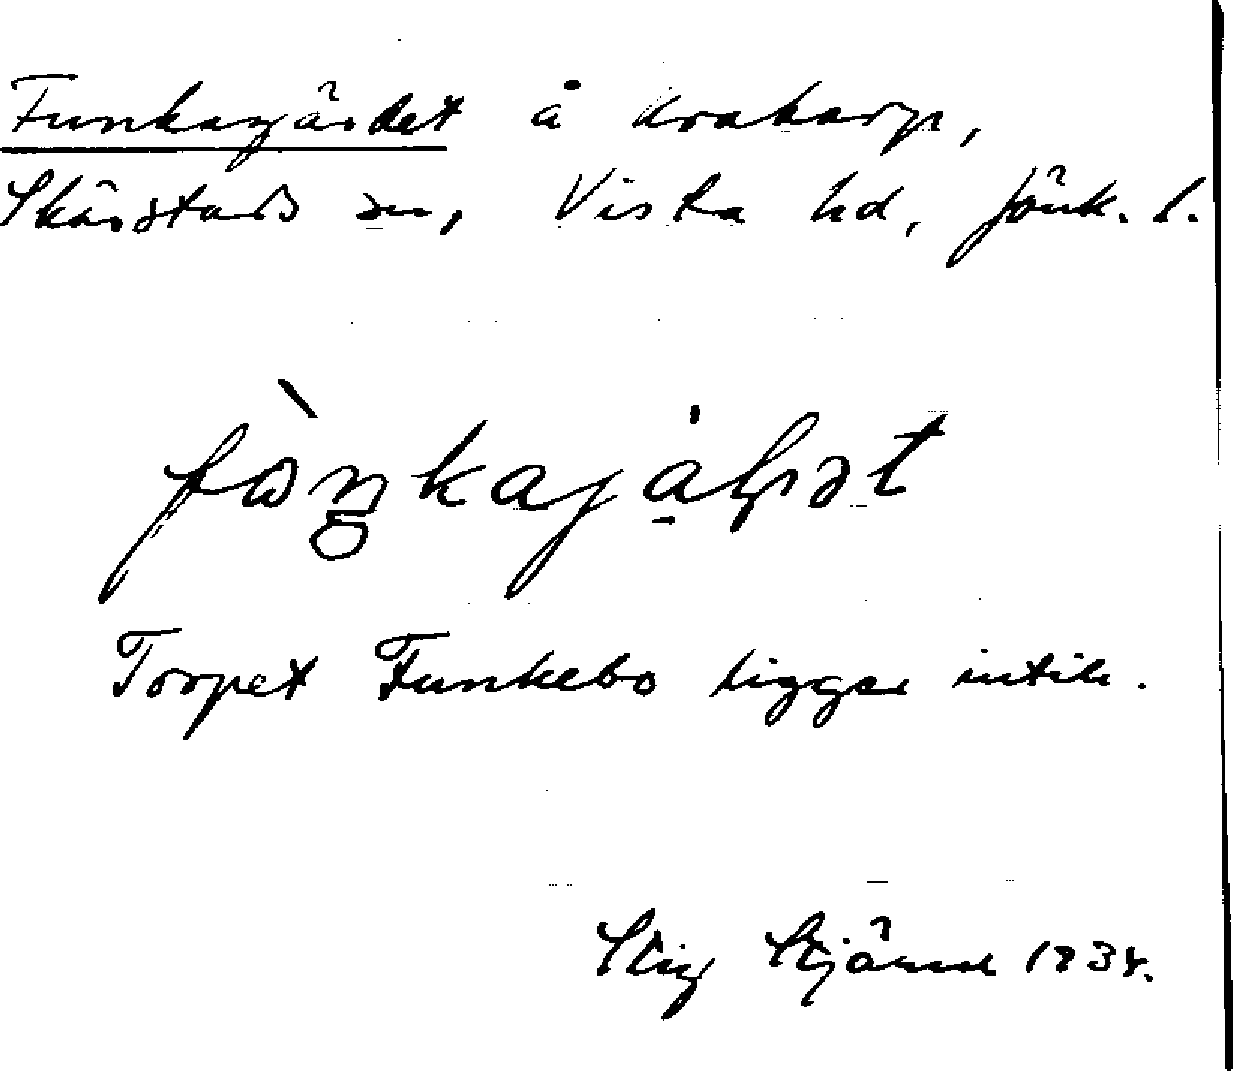 Funkagärdet å Drakarp,
Skärstads sn, Vista hd, Jönk. l.
Torpet Funkebo ligger intill.
Stig 1934.